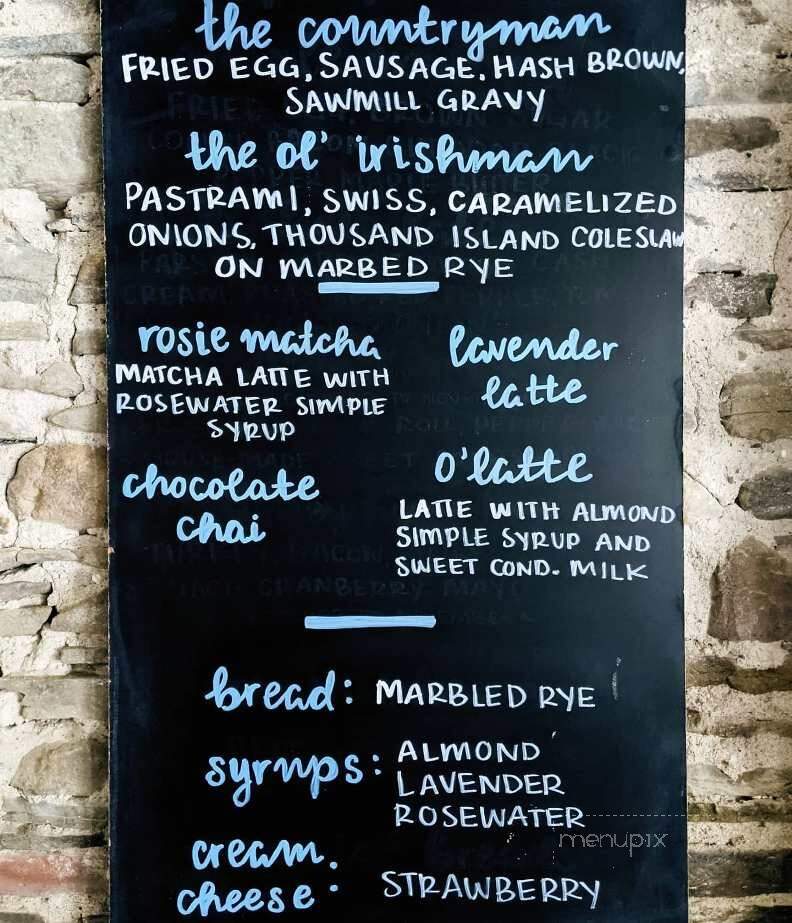 the countryman
FRIED EGG, SAUSAGE, HASH BROWN,
SAWMILL GRAVY
the ol' irishman
PASTRAMI, SWISS, CARAMELIZED
ONIONS, THOUSAND ISLAND COLESLAW
ON MARBED RYE
rosie matcha
MATCHA LATTE WITH
ROSEWATER SIMPLE
SYRUP
lavender
latte
chocolate
chai
o'latte
LATTE WITH ALMOND
SIMPLE SYRUP AND
SWEET COND. MILK
bread: MARBLED RYE
syrups: ALMOND
LAVENDER
ROSEWATER
menupix
cream
cheese: STRAWBERRY